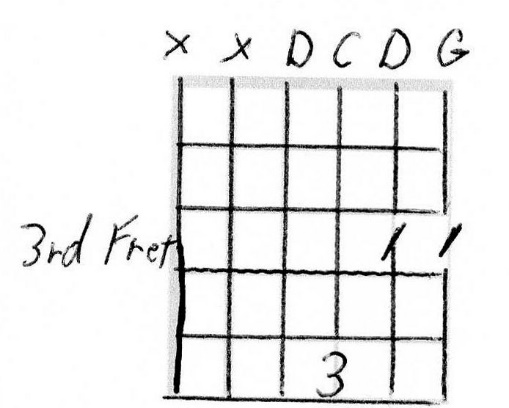 X X D C D G
3rd Fret 1 1
3